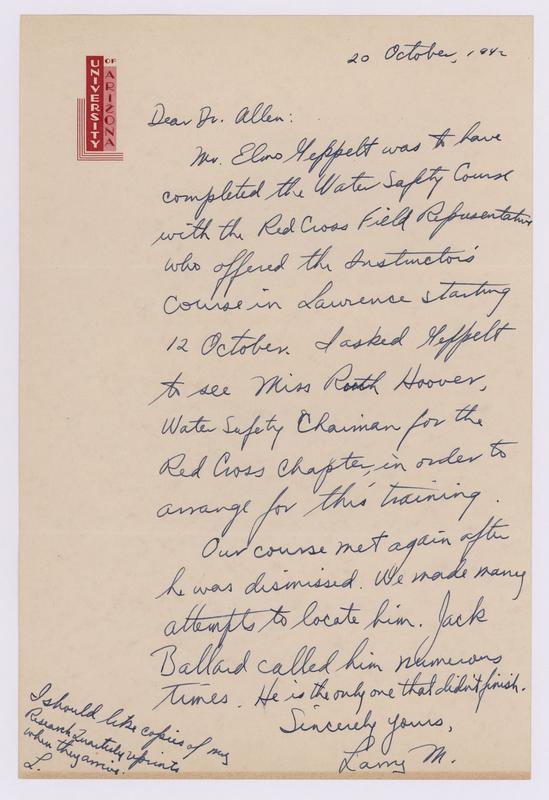 UNIVERSITY
OF ARIZONA
20 October, 1942
Dear Dr. Allen:
Mr. Elmo Geppelt was to have
completed the Water Safety Course
with the Red Cross Field Representative
who offered the Instructor's
Course in Lawrence starting
12 October. I asked Geppelt
to see Miss Ruth Hoover,
Water Safety Chairman for the
Red Cross chapter, in order to
arrange for this training.
Our course met again after
he was dismissed. We made many
attempts to locate him. Jack
Ballard called him numerous
times. He is the only one that didn't finish.
Sincerely yours,
Larry M.
I should like copies of my
Research Quarterly reprints
when they arrive.
L.